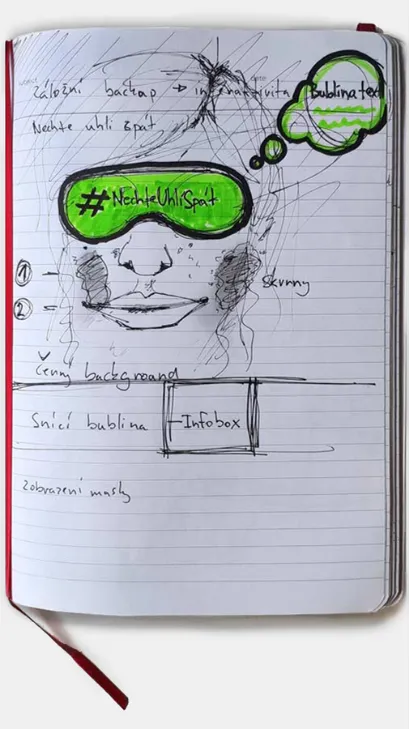 Záložní backap → interaktivita
Bublina text
Nechte uhlí spát
#NechteUhlíSpát
1
skvrny
2
Černý background
Snící bublina
Infobox
Zobrazení masky